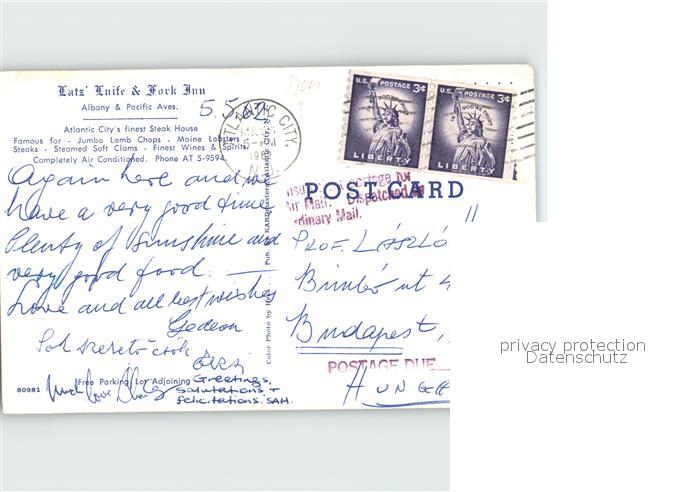 Latz' Knife & Fork Inn
Albany & Pacific Aves.
5.5.62.
Atlantic City's finest Steak House
Famous for - Jumbo Lamb Chops - Maine Lobsters
Steaks - Steamed Soft Clams - Finest Wines & Spirits
Completely Air Conditioned. Phone AT 5-9594
ATLANTIC CITY,
U.S. POSTAGE 3¢
IN GOD WE TRUST
LIBERTY
U.S. POSTAGE 3¢
IN GOD WE TRUST
LIBERTY
POST CARD
postage for
Air Mail. Dispatched
ordinary Mail.
Again here and we
have a very good time
Plenty of sunshine and
very good food. —
Love and all best wishes
Gedeon
Sok szeretö csók
Much love
Free Parking Lot Adjoining
Greetings,
salutations +
felicitations. SAH.
80981
Color Photo by
Pub. by
PROF. LÁSZLÓ
Bimbó ut 4
Budapest,
POSTAGE DUE
HUNGA
privacy protection
Datenschutz